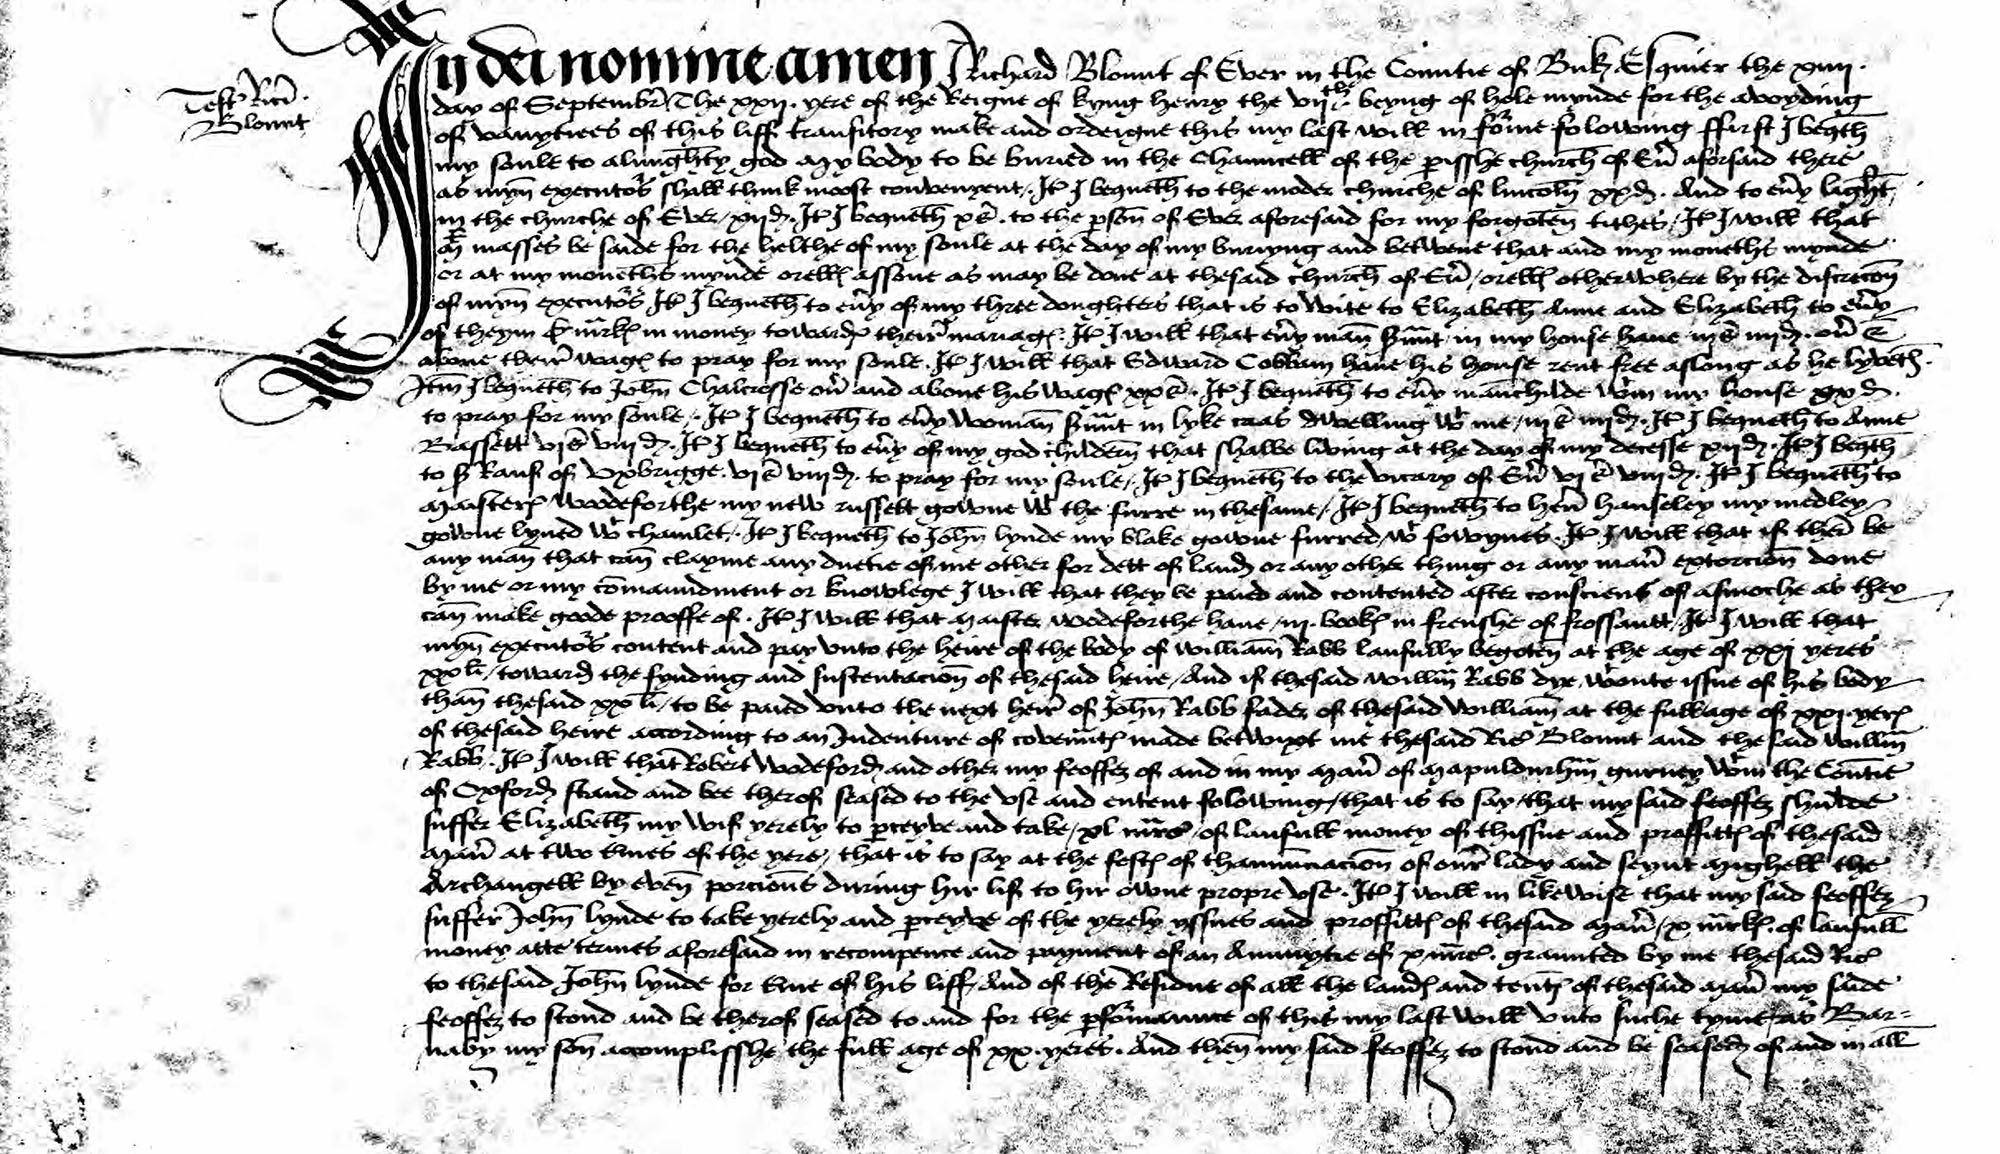 Testm Rici
Blount
In dei nomine amen I Richard Blount of Ever in the Countie of Buk Esquier the xiiii
day of Septembr The xxii yere of the Reigne of kyng henry the vii the beyng of hole mynde for the avoyding
of vanyties of this liff transitory make and ordeigne this my last will in forme folowing ffirst I beqth
my soule to almighty god my body to be buried in the Chauncell of the pisshe church of Evr aforsaid there
as myn executors shall think moost convenyent / It I bequeth to the moder churche of lincoln xx d And to evy light
in the churche of Ever / xii d It I bequeth x s to the pson of Ever aforesaid for my forgoten tithes / It I will that
masses be saide for the helthe of my soule at the day of my buriyng and betwene that and my moneths mynde
or at my moneths mynde orelles assone as may be done at thesaid church of Evr / orelles otherwhere by the discrecon
of myn executors It I bequeth to evy of my three doughters that is to wite to Elizabeth Anne and Elizabeth to evy
of theym mrks in money towards their mariage It I will that evy man svnt in my house have iii s iiii d ovr &
above their wages to pray for my soule It I will that Edward Cobham have his house rent free aslong as he lyveth
Itm I bequeth to John Chalcrosse ovr and above his wages xx s It I bequeth to evy manchilde wtin my house xx d
to pray for my soule / It I bequeth to evy woman svnt in lyke caas dwelling wt me / iii s iiii d It I bequeth to Anne
Bassett vi s viii d It I bequeth to evy of my god childern that shalbe living at the day of my decesse xii d It I beqth
to Sr Rauf of Uxbrigge vi s viii d to pray for my soule / It I bequeth to the vicary of Evr vi s viii d It I bequeth to
Maisters Wodeforthe my new russett gowne wt the furre in thesame / It I bequeth to henr hanseley my medley
gowne lyned wt chamlet / It I bequeth to John lynde my blake gowne furred wt fowynes It I will that if ther be
any man that can clayme any duetie of me other for dett of land or any other thing or any manr extorcion done
by me or my comaundment or knowlege I will that they be paied and contented after consciens of asmoche as they
can make goode prooffe of It I will that Maister Wodeforthe have / iii books in frenshe of frossartt / It I will that
myn executors content and pay unto the heire of the body of William Rabb laufully begoten at the age of xxi yeres
xx li / toward the fynding and sustentacion of thesaid heire / And if thesaid Willm Rabb dye wtoute issue of his body
than thesaid xx li / to be paied unto the next heir of John Rabb fader of thesaid William at the full age of xxi yers
of thesaid heire according to an Indenture of covennts made betwixt me thesaid Ric Blount and the said Willm
Rabb It I will that Robert Wodeford and other my feoffez of and in my Manr of Mapuldurhm gurney wtin the Countie
of Oxford stand and bee therof seased to the use and entent folowing / that is to say / that my said feoffez shulde
suffer Elizabeth my wif yerely to pceyve and take / xl mrcs / of laufull money of thissue and proffitts of thesaid
Manr at two tmes of the yere / that is to say at the fests of thannunciacion of our lady and seynt Mighell the
Archangell by even porcions during hir lif to hir owne propre use It I will in likewise that my said feoffez
suffer John lynde to take yerely and pceyve of the yerely yssues and proffitts of thesaid Manr / x mrks of laufull
money atte termes aforesaid in recompence and payment of an Annuytie of x mrcs graunted by me thesaid Ric
to thesaid John lynde for tme of his liff / And of the Residue of all the lands and tents of thesaid Manr my saide
feoffez to stond and be therof seased to and for the pformaunce of this my last will unto suche tyme as Bar=
naby my son accomplisshe the full age of xx yeres And then my said feoffez to stond and be seased of and in all